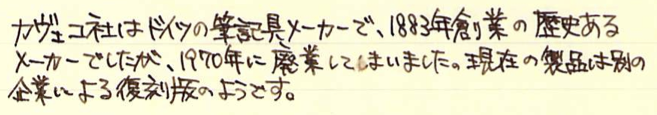 カヴェコ社はドイツの筆記具メーカーで、1883年創業の歴史ある
メーカーでしたが、1970年に廃業してしまいました。現在の製品は別の
企業による復刻版のようです。